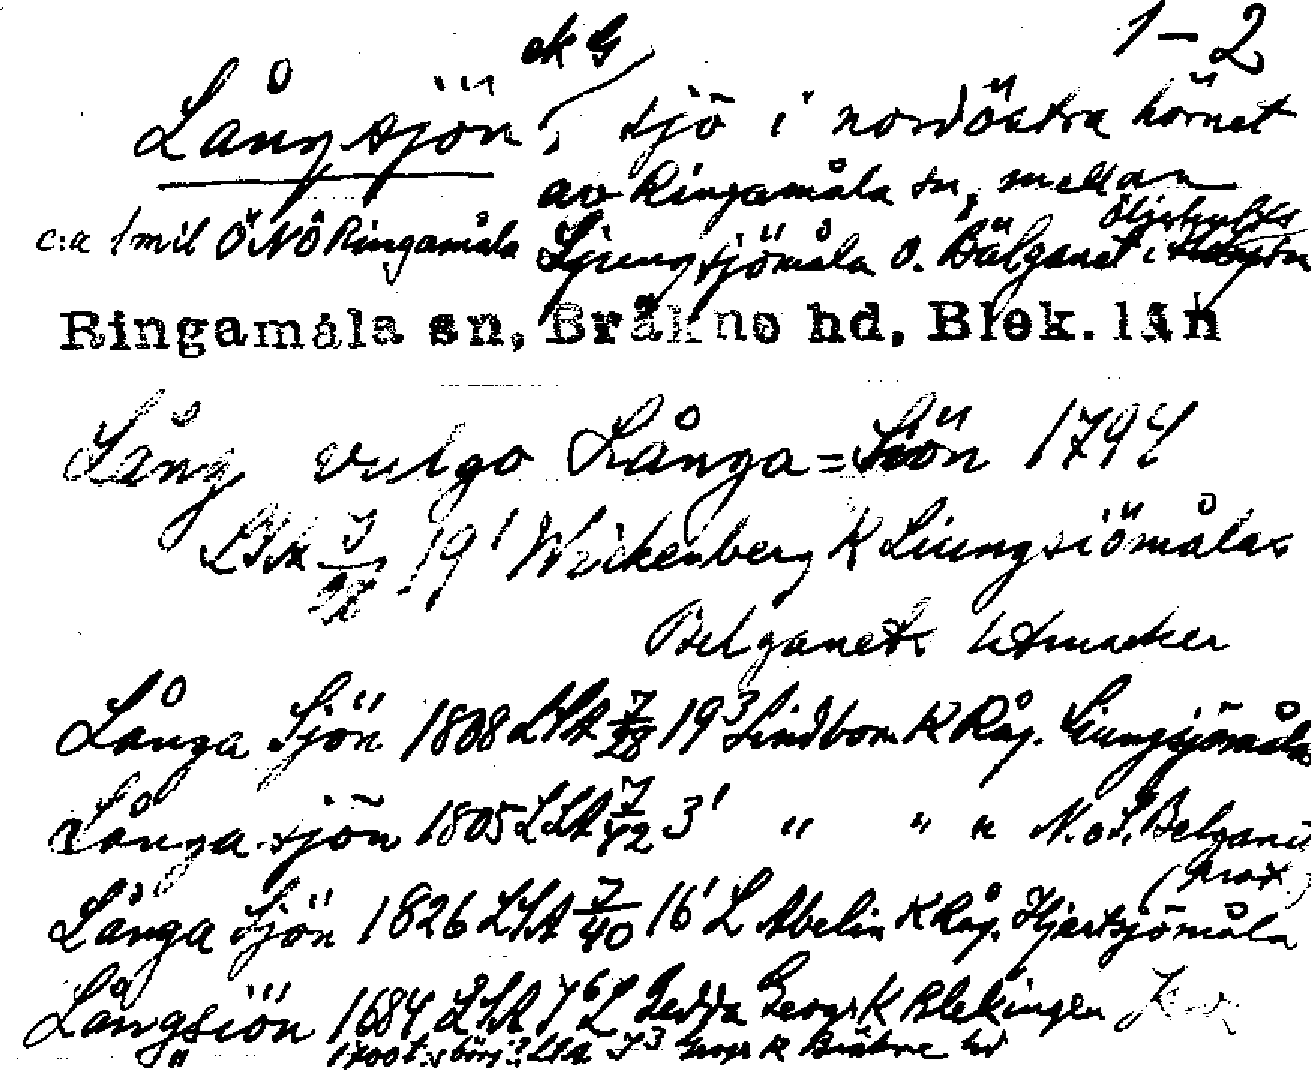 ek G 1-2
Långsjön, sjö i nordöstra hörnet
av Ringamåla sn, mellan
c:a 1 mil ÖNÖ Ringamåla Ljungsjömåla o. Bälganet i
Ringamåla sn, Bräkne hd, Blek. län
Lång vulgo Långa=Siön 1794
LSA 7/28 19¹ Wickenberg K Liungsiömålas
Belganets utmarker
Långa Sjön 1808 LSA 7/28 19³ Lindbom K Råg. Liungsjömålas
Långa sjön 1805 LSA 7/42 3¹ " " " N. o S. Belganet
Långa Sjön 1826 LSA 7/40 16¹ L Abelin K Råg. Hjertsjömåla
Långsiön 1684 LSA J⁶ L Gedda Geogr K Blekingen
" 1700 t. LSA J³ Geogr K Bräkne hd